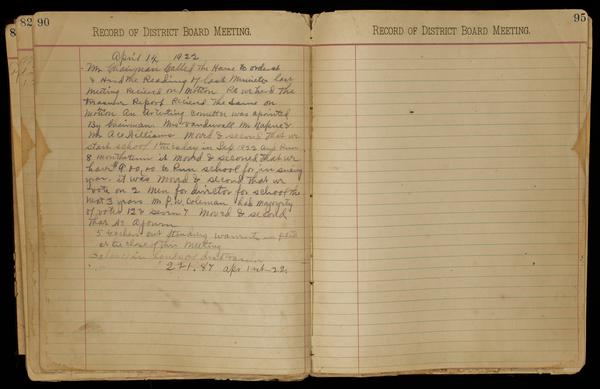 82 90
8
RECORD OF DISTRICT BOARD MEETING.
April 14, 1922
Mr Chairman Called The House to order
& Had the Reading of Last Minutes Last
Meeting Recieved on Motion Re we herd The
Treasurer Report Recieved The Same on
Motion An Auditing Comittee was apointed
By Chairman. Mrs Vanduvall Mr
Mr A C Williams Moved & second That we
start school 1 tuesday in Sep 1922 and Run
8 month term it Moved & seconed That we
have $900,00 to Run school for in suing
year. it was Moved & second That we
vote on 2 Men for director for school the
next 3 years Mr P. W. Coleman has Majoyrity
of votes 12 & seven 7 Moved & second
That we Ajourn
5 teachers out standing warrants
at the close of This Meeting
Balance in
271.87 Apr 1st-22
95
RECORD OF DISTRICT BOARD MEETING.